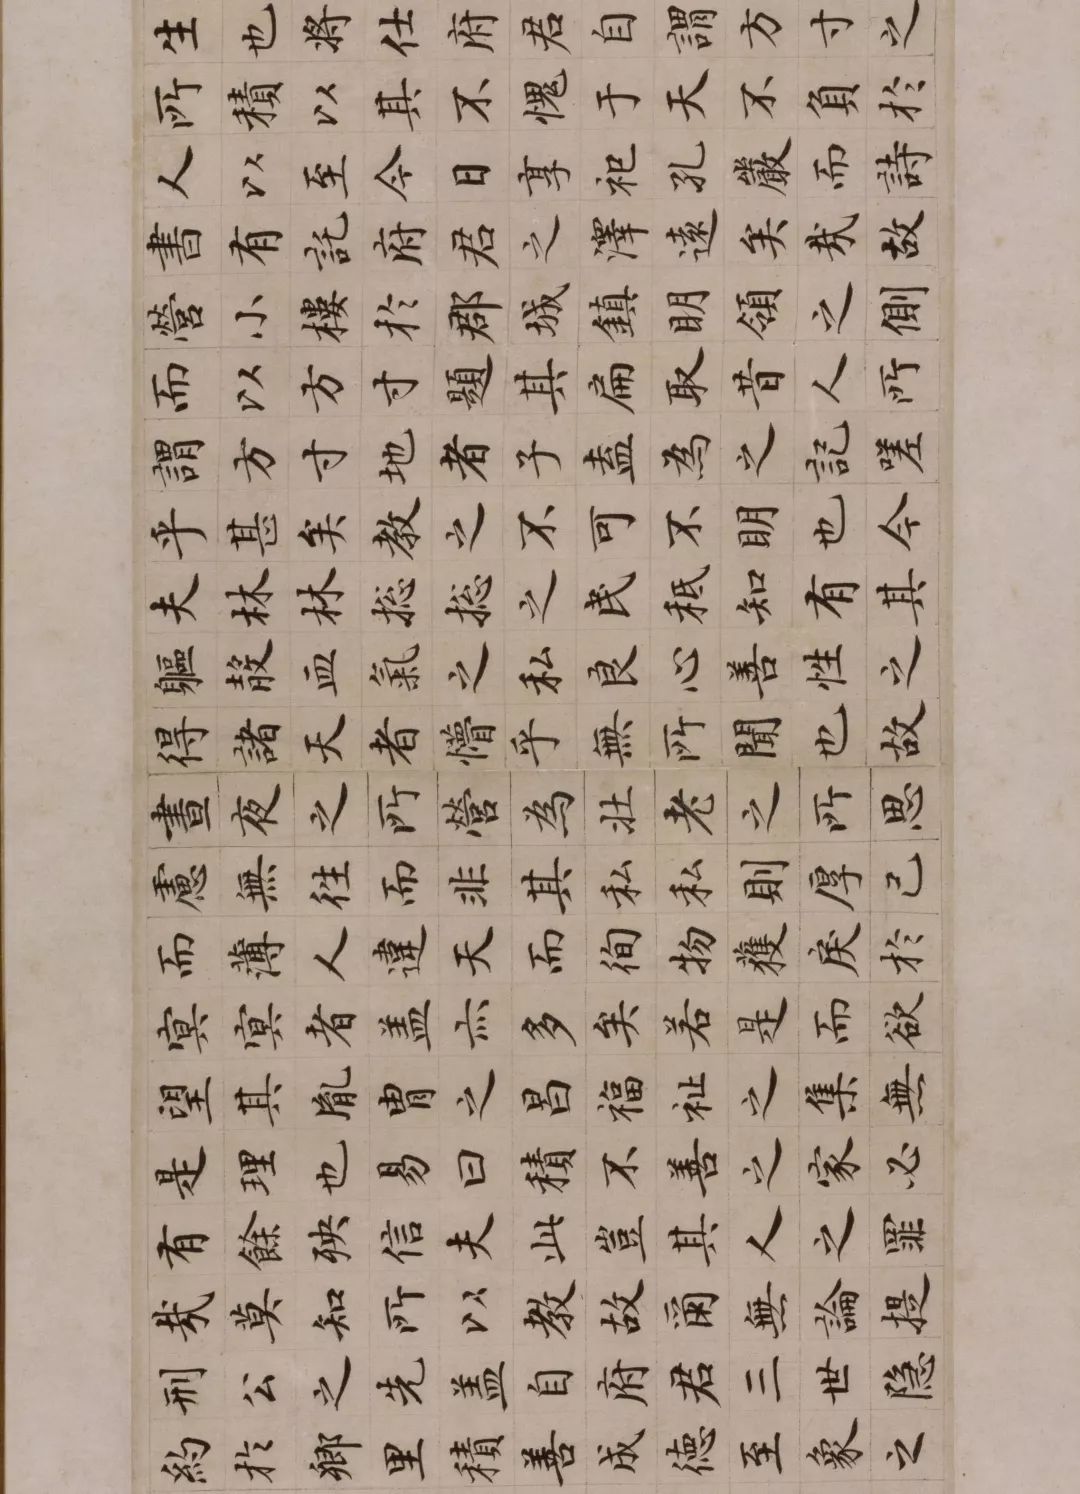 生也將仕府君自謂方寸之
所積以其不愧于天不負於
人以至今日享祀孔嚴而詩
書有託府君之澤遠矣哉故
營小樓於郡城鎮明領之側
而以方寸題其扁取昔人所
謂方寸地者子盍為之記嗟
乎甚矣教之不可不明也今
夫林林揔揔之民秪知有其
軀殼血氣之私良心善性之
得諸天者懵乎無所聞也故
晝夜之所營為壯老之所思
慮無往而非其私私則厚己
而薄人違天而徇物獲戾於
冥冥者盖亦多矣若是而欲
望其胤胄之昌福祉之集無
是理也易曰積不善之家必
有餘殃信夫此豈其人之罪
哉莫知所以教故爾無論提
刑公之先盖自府君三世隱
約於鄉里積善成德至象之